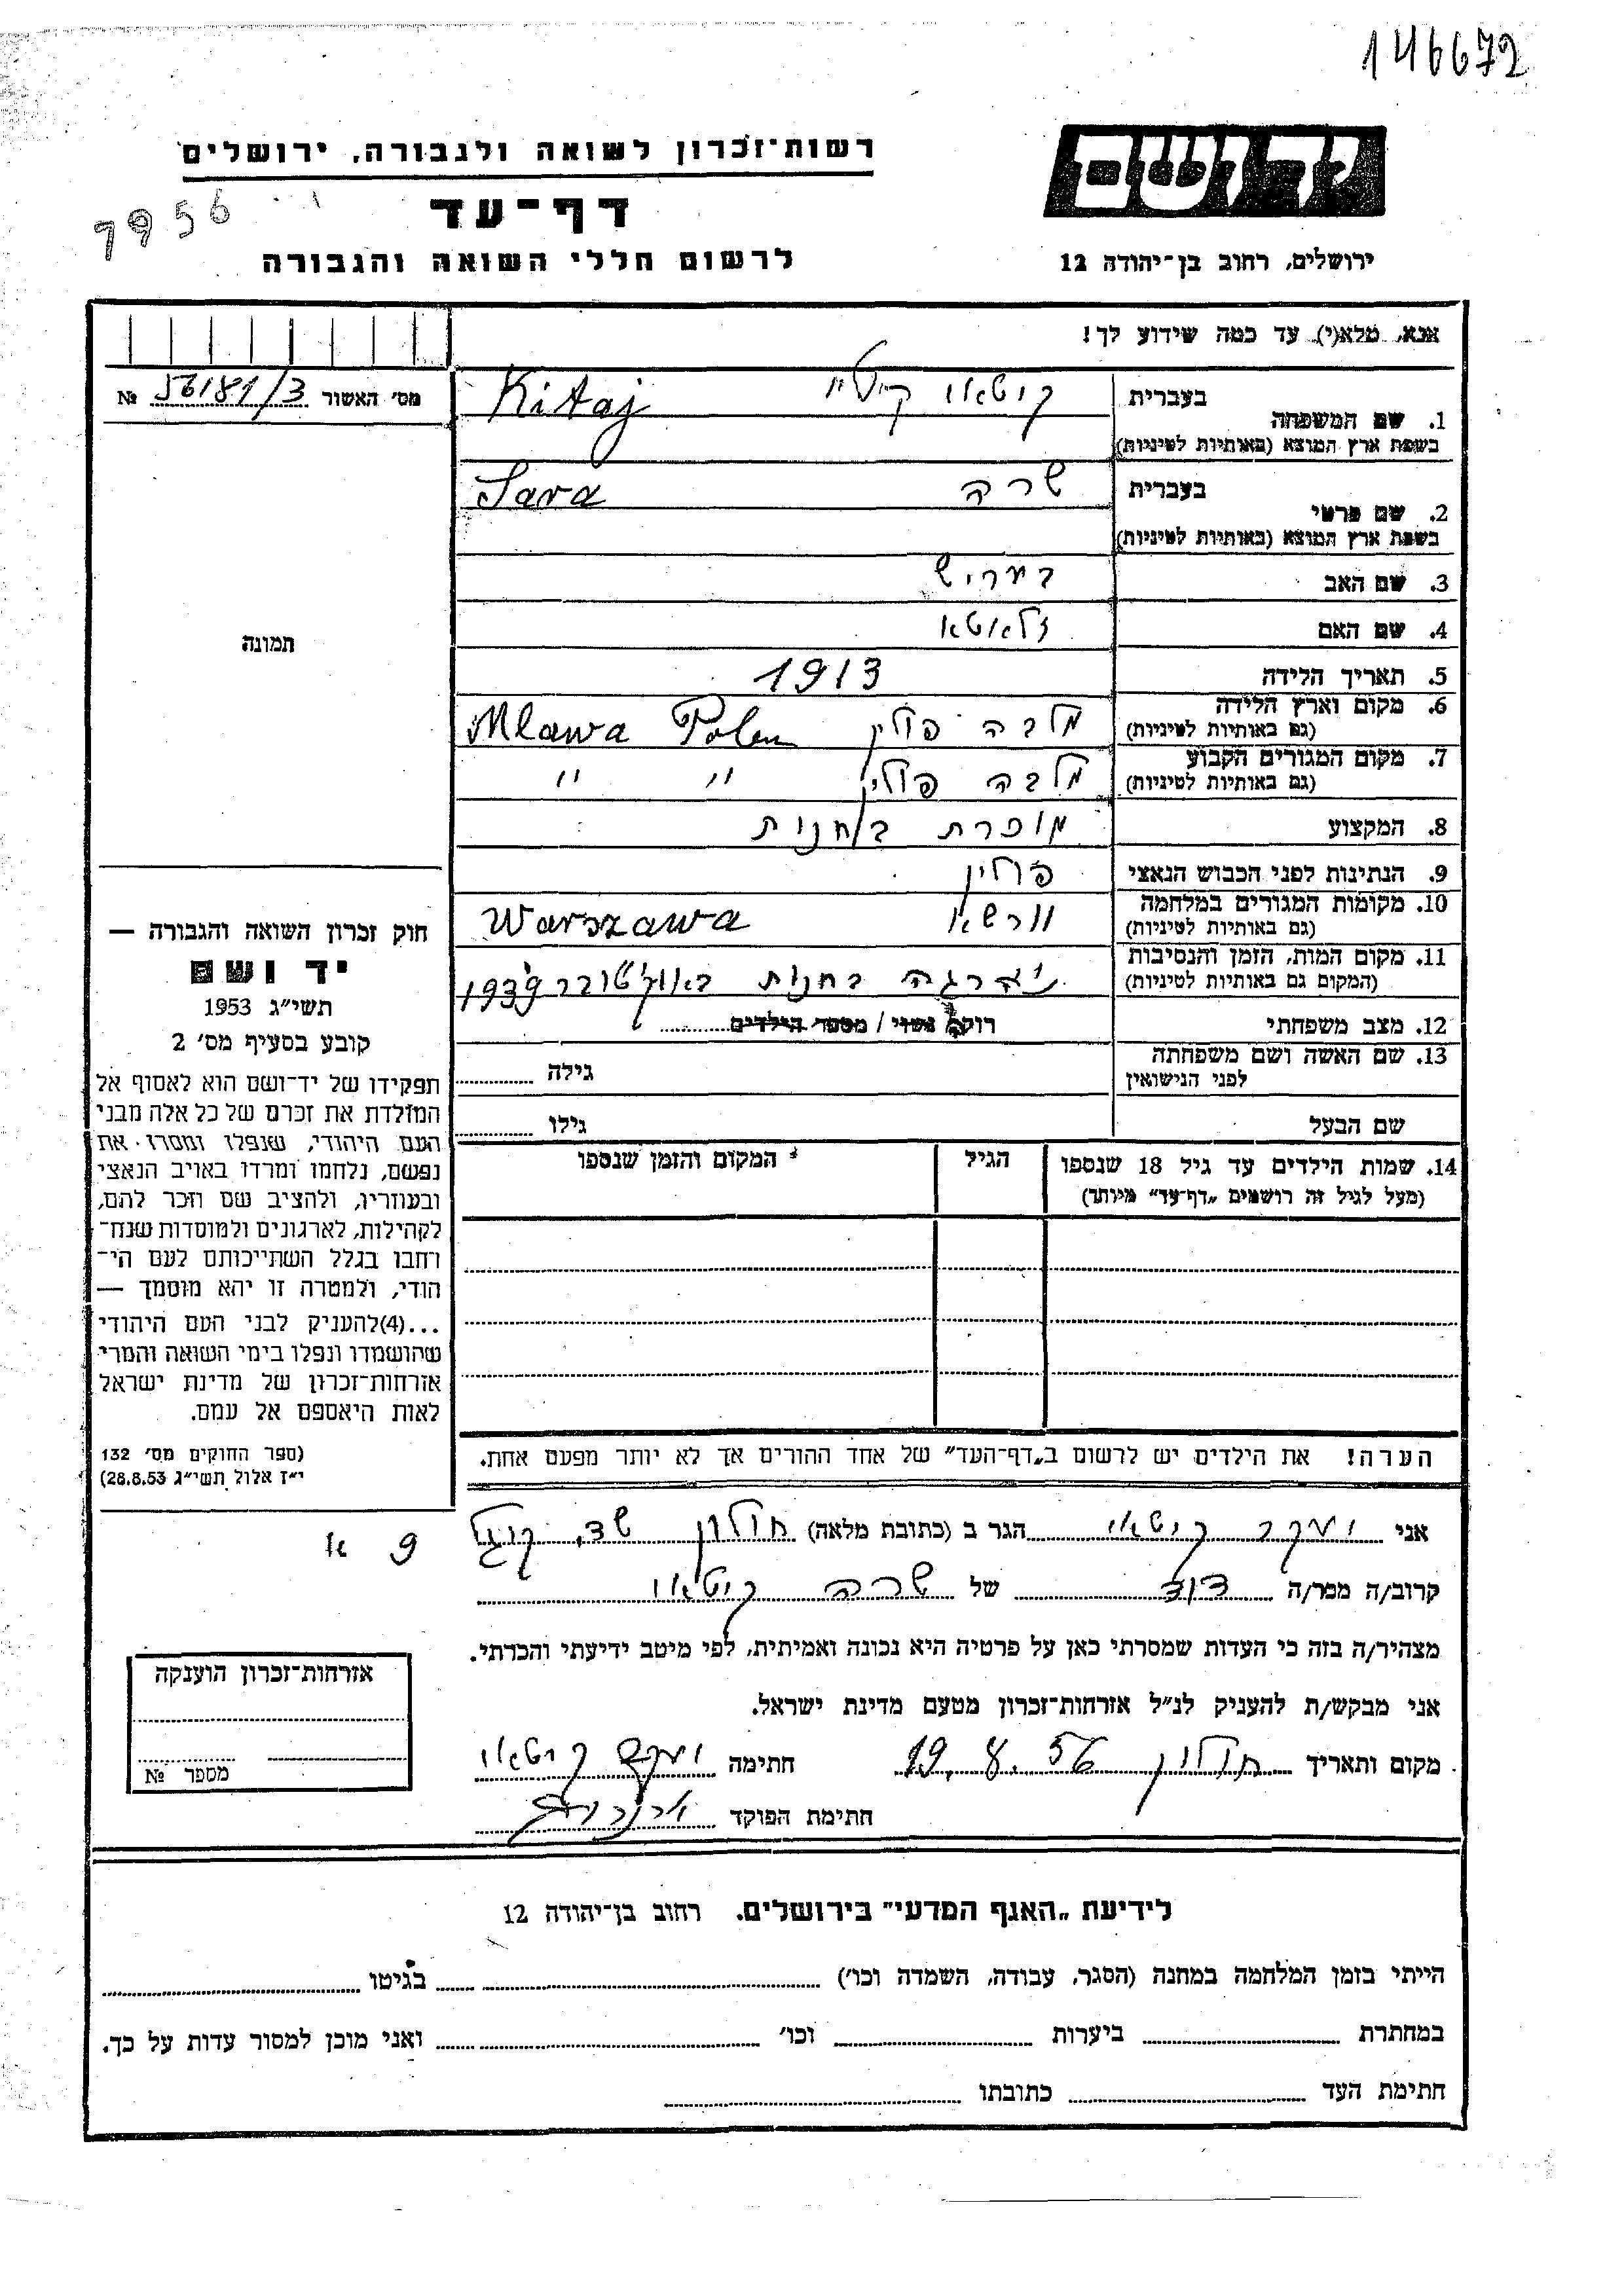 146672
יד ושם
רשות־זכרון לשואה ולגבורה, ירושלים
דף־עד
1956
ירושלים, רחוב בן־יהודה 12
לרשום חללי השואה והגבורה
אנא, מלא(י) עד כמה שידוע לך!
מס׳ האשור 56181/3 №
1. שם המשפחה
בעברית קיטאי Kitaj
בשפת ארץ המוצא (באותיות לטיניות)
2. שם פרטי
בעברית שרה Sara
בשפת ארץ המוצא (באותיות לטיניות)
3. שם האב בעריש
4. שם האם זלאטא
תמונה
5. תאריך הלידה 1913
6. מקום וארץ הלידה מלבה פולין Mlawa Polen
(גם באותיות לטיניות)
7. מקום המגורים הקבוע מלבה פולין " "
(גם באותיות לטיניות)
8. המקצוע מוכרת בחנות
9. הנתינות לפני הכבוש הנאצי פולין
10. מקומות המגורים במלחמה וורשא Warszawa
(גם באותיות לטיניות)
11. מקום המות, הזמן והנסיבות נהרגה בחנות באוקטובר 1939
(המקום גם באותיות לטיניות)
12. מצב משפחתי רווקה נשוי / מספר הילדים
13. שם האשה ושם משפחתה גילה
לפני הנישואין
שם הבעל גילו
14. שמות הילדים עד גיל 18 שנספו הגיל המקום והזמן שנספו
(מעל לגיל זה רושמים „דף־עד״ מיוחד)
חוק זכרון השואה והגבורה —
יד ושם
תשי״ג 1953
קובע בסעיף מס׳ 2
תפקידו של יד־ושם הוא לאסוף אל
המולדת את זכרם של כל אלה מבני
העם היהודי, שנפלו ומסרו את
נפשם, נלחמו ומרדו באויב הנאצי
ובעוזריו, ולהציב שם וזכר להם,
לקהילות, לארגונים ולמוסדות שנח־
רחבו בגלל השתייכותם לעם הי־
הודי, ולמטרה זו יהא מוסמך —
...(4)להעניק לבני העם היהודי
שהושמדו ונפלו בימי השואה והמרי
אזרחות־זכרון של מדינת ישראל
לאות היאספם אל עמם.
(ספר החוקים מס׳ 132
י״ז אלול תשי״ג 28.8.53)
הערה! את הילדים יש לרשום ב„דף־העד״ של אחד ההורים אך לא יותר מפעם אחת.
אני יעקב קיטאי הגר ב (כתובת מלאה) חולון שד. קוגל
9 א
קרוב/ה מכר/ה דוד של שרה קיטאי
מצהיר/ה בזה כי העדות שמסרתי כאן על פרטיה היא נכונה ואמיתית, לפי מיטב ידיעתי והכרתי.
אני מבקש/ת להעניק לנ״ל אזרחות־זכרון מטעם מדינת ישראל.
מקום ותאריך חולון 19.8.56 חתימה יעקב קיטאי
חתימת הפוקד
אזרחות־זכרון הוענקה
מספר №
לידיעת „האגף המדעי״ בירושלים. רחוב בן־יהודה 12
הייתי בזמן המלחמה במחנה (הסגר, עבודה, השמדה וכו׳) בגיטו
במחתרת ביערות וכו׳ ואני מוכן למסור עדות על כך.
חתימת העד כתובתו